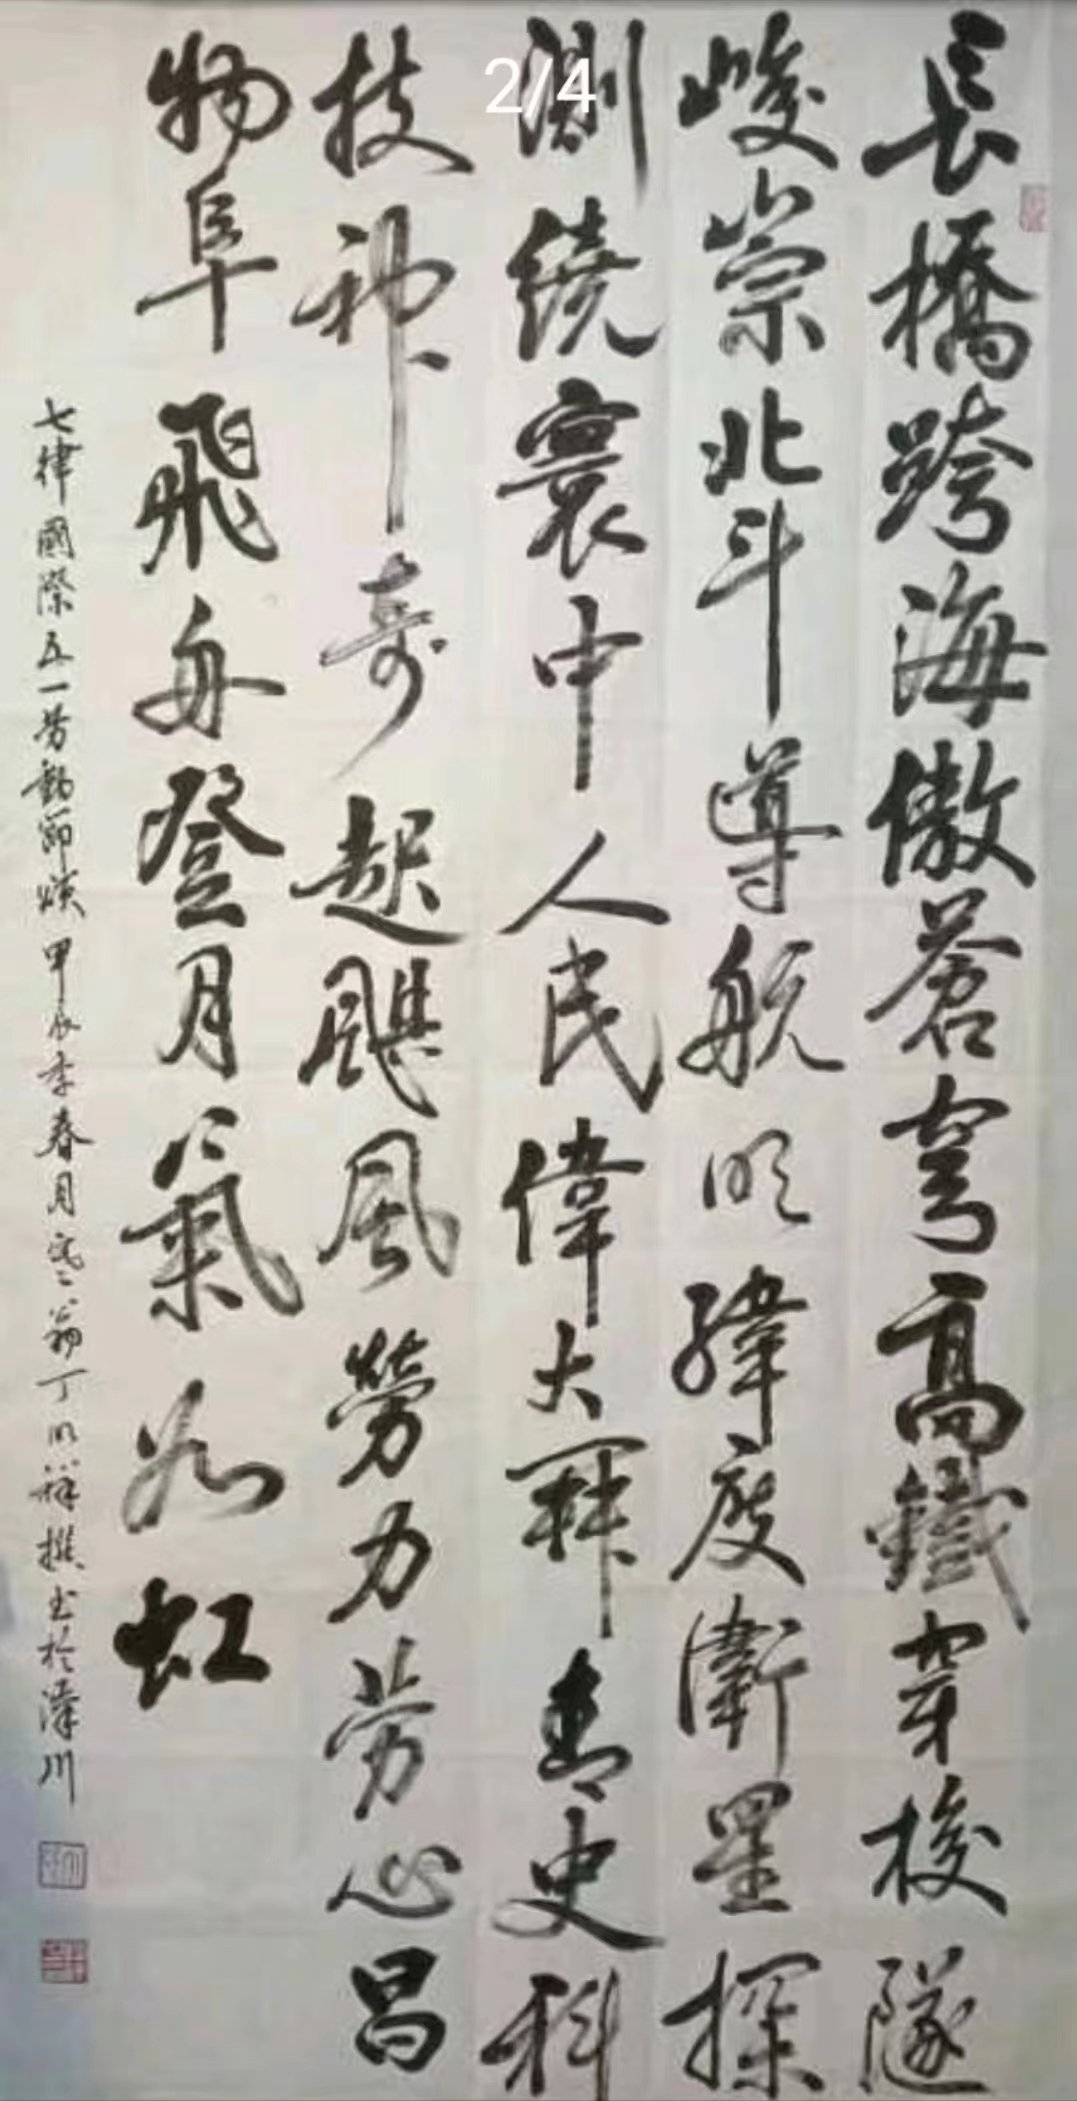 長橋跨海傲蒼穹高鐵穿梭隧
峻崇北斗導航明緯度衛星探
測繞寰中人民偉大辉青史科
技神奇起颶風勞力劳心昌
物阜飛舟登月氣如虹
七律國際五一劳動節頌 甲辰季春月 翁丁明祥撰书於濠川
2/4